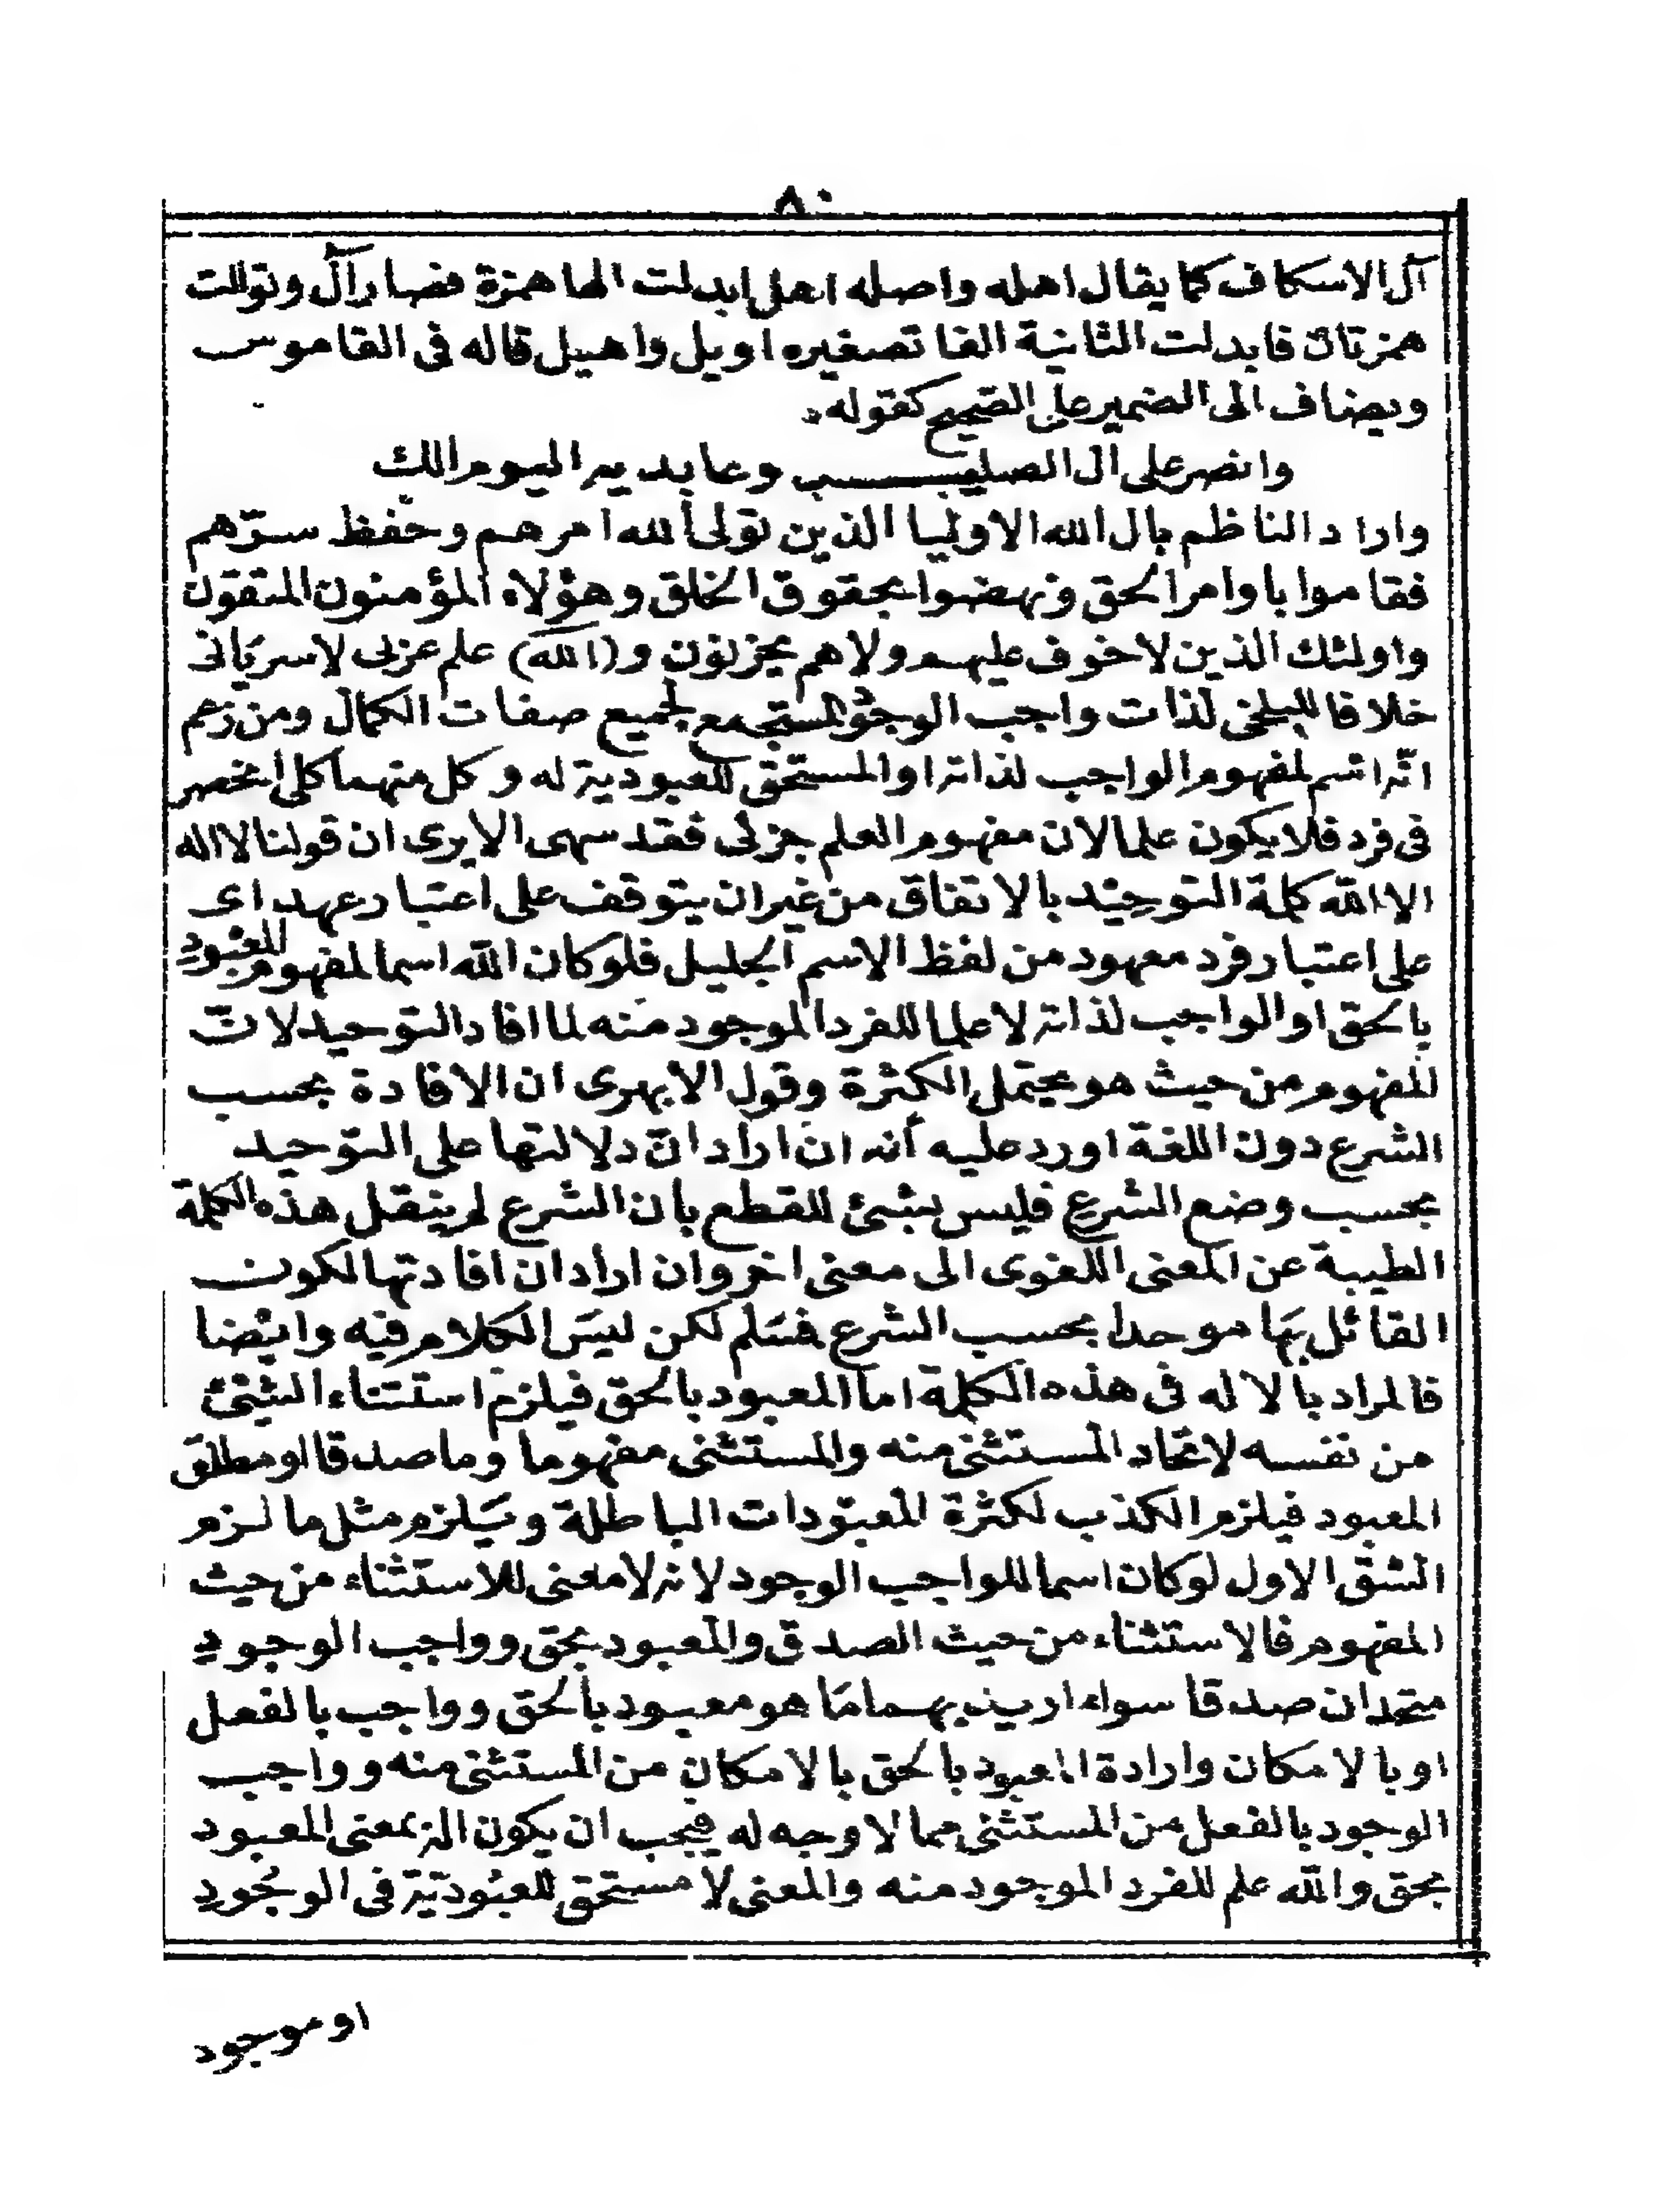 ٨٠
آل الاسكاف كما يقال اهله واصله اهل ابدلت الها همزة فصار أأل وتوالت
همزتان فابدلت الثانية الفا تصغيره اويل واهيل قاله فى القاموس
ويضاف الى الضمير على الصحيح كقوله
وانصر على ال الصليب وعابديه اليوم الك
واراد الناظم بال الله الاوليا الذين تولى الله امرهم وحفظ سرّهم
فقاموا باوامر الحق ونهضوا بحقوق الخلق وهؤلاء المؤمنون المتقون
واولئك الذين لا خوف عليهم ولا هم يحزنون و (الله) علم عربى لا سريانى
خلافا للبلخى لذات واجب الوجود المستجمع لجميع صفات الكمال ومن زعم
انّه اسم لمفهوم الواجب لذاته او المستحق للعبودية له وكل منهما كلى انحصر
فى فرد فلا يكون علما لان مفهوم العلم جزئى فقد سهى الا يرى ان قولنا لا اله
الا الله كلمة التوحيد بالاتفاق من غير ان يتوقف على اعتبار عهد اى
على اعتبار فرد معهود من لفظ الاسم الجليل فلو كان الله اسما لمفهوم المعبود
بالحق او الواجب لذاته لا علما للفرد الموجود منه لما افاد التوحيد لانّ
المفهوم من حيث هو يحتمل الكثرة وقول الابهرى ان الافادة بحسب
الشرع دون اللغة اورد عليه أنه ان اراد انّ دلالتها على التوحيد
بحسب وضع الشرع فليس بشئ للقطع بان الشرع لم ينقل هذه الكلمة
الطيبة عن المعنى اللغوى الى معنى اخر وان اراد ان افادتها لكون
القائل بها موحدا بحسب الشرع فمسلم لكن ليس الكلام فيه وايضا
فالمراد بالاله فى هذه الكلمة اما المعبود بالحق فيلزم استثناء الشئ
من نفسه لاتحاد المستثنى منه والمستثنى مفهوما وما صدقا او مطلق
المعبود فيلزم الكذب لكثرة المعبودات الباطلة ويلزم مثل ما لزم
الشق الاول لو كان اسما للواجب الوجود لانه لا معنى للاستثناء من حيث
المفهوم فالاستثناء من حيث الصدق والمعبود بحق وواجب الوجود
متحدان صدقا سواء اريد بهما ما هو معبود بالحق وواجب بالفعل
او بالامكان وارادة المعبود بالحق بالامكان من المستثنى منه وواجب
الوجود بالفعل من المستثنى مما لا وجه له فيجب ان يكون اله بمعنى المعبود
بحق والله علم للفرد الموجود منه والمعنى لا مستحق للعبوديّة فى الوجود
او موجود